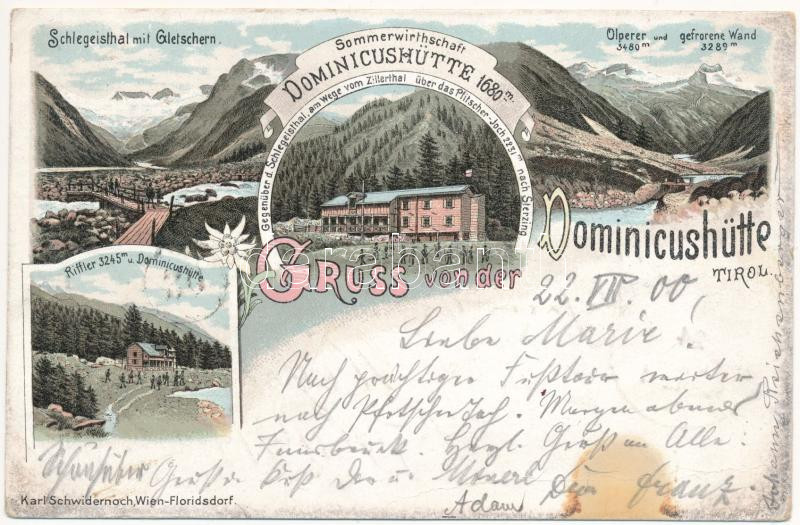 Schlegeisthal mit Gletschern.
Sommerwirthschaft
DOMINICUSHÜTTE 1680 m.
Gegenüber d. Schlegeisthal, am Wege vom Zillerthal über das Pfitscher-Joch 2231 m nach Sterzing
Olperer und gefrorene Wand
3480 m 3289 m
GRUSS von der Dominicushütte
TIROL.
Riffler 3245 m u. Dominicushütte
22. VII. 00,
Liebe Marie!
Nach prächtiger Fußtour weiter
nach Pfitscher Joch. Morgen abend
Innsbruck. Herzl. Gruß an Alle.
Dein Franz.
Adam
Karl Schwidernoch, Wien-Floridsdorf.